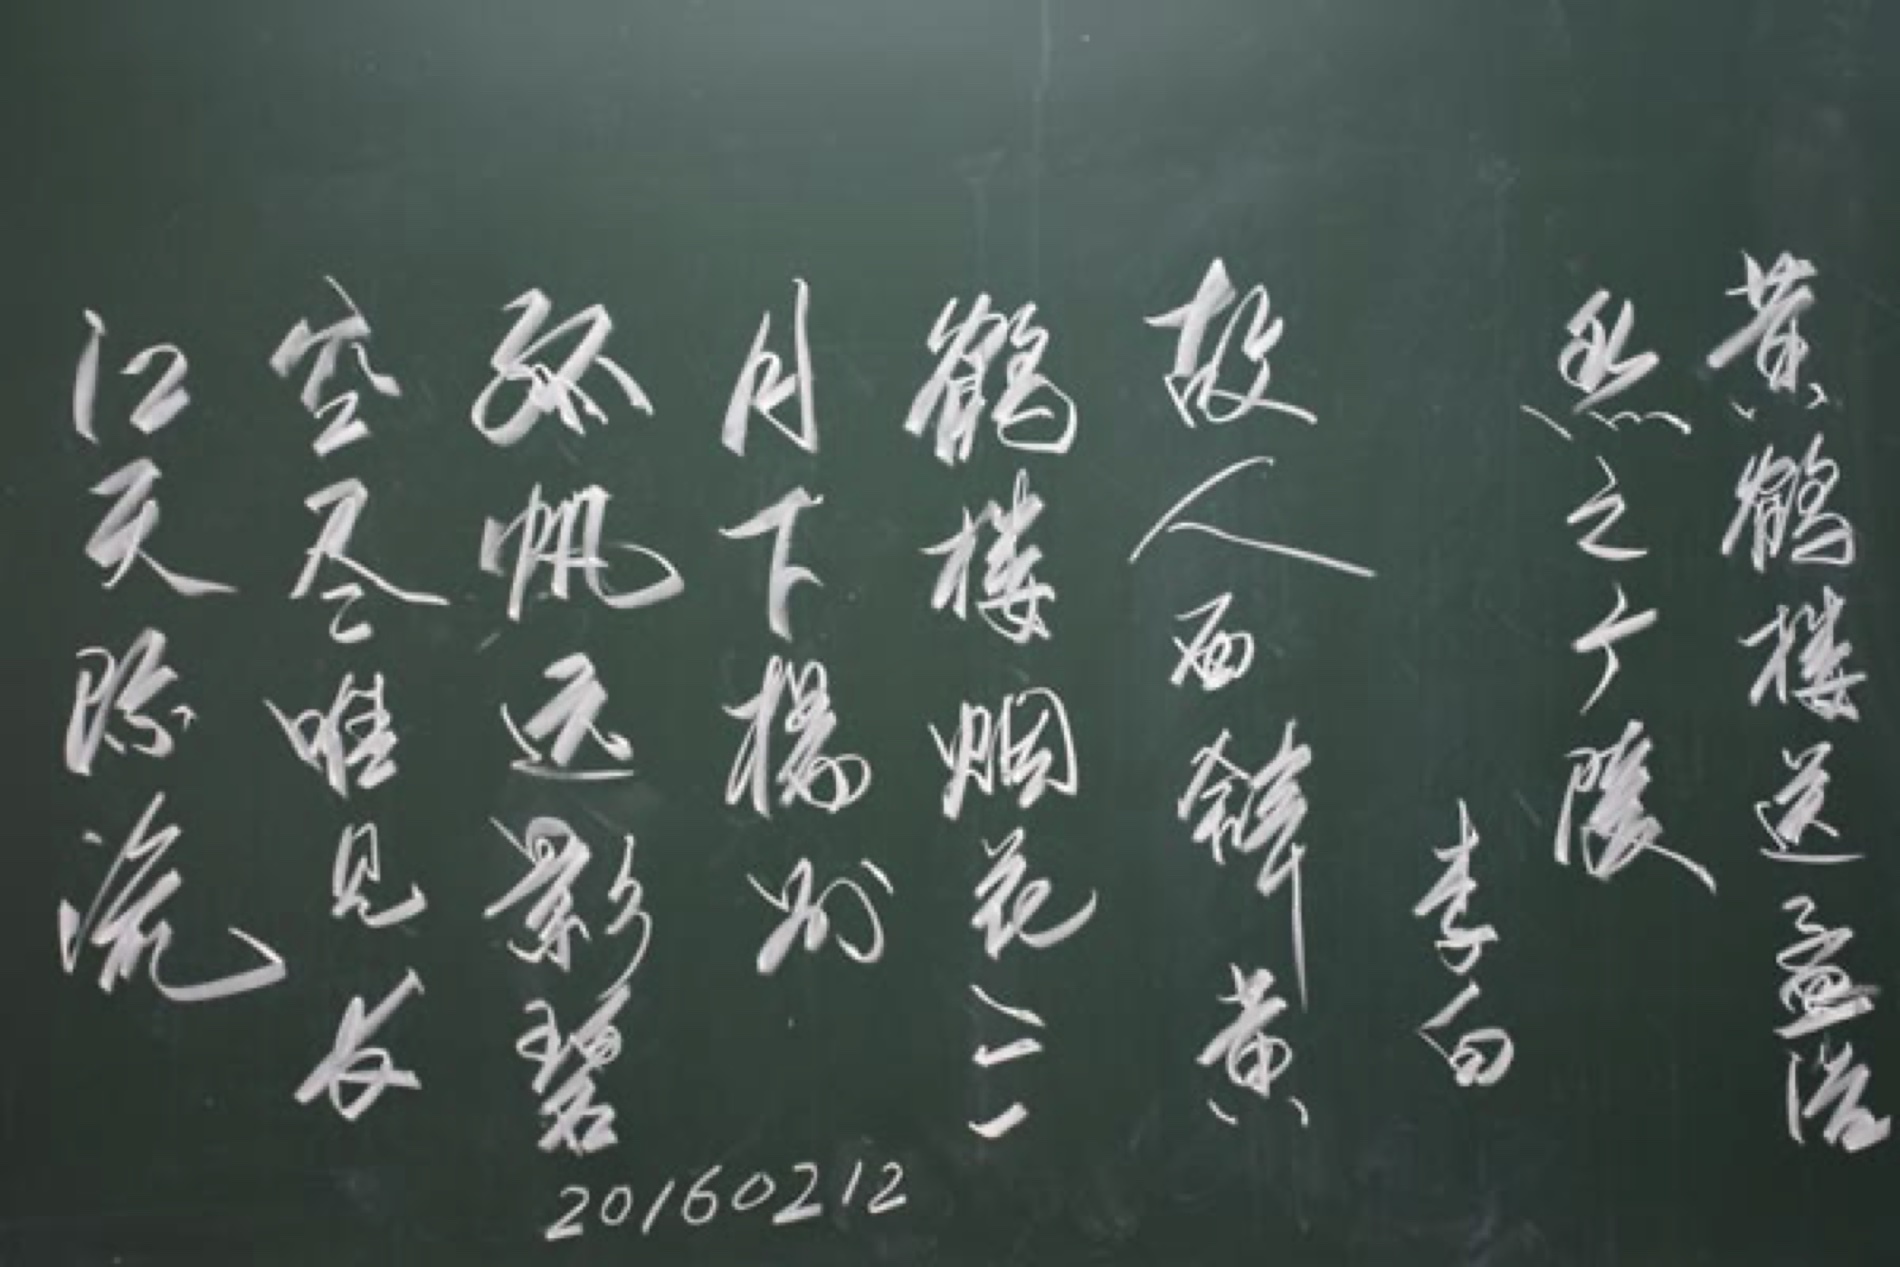 黄鹤楼送孟浩
然之广陵
李白
故人西辞黄
鹤楼烟花三
月下扬州
孤帆远影碧
空尽唯见长
江天际流
20160212